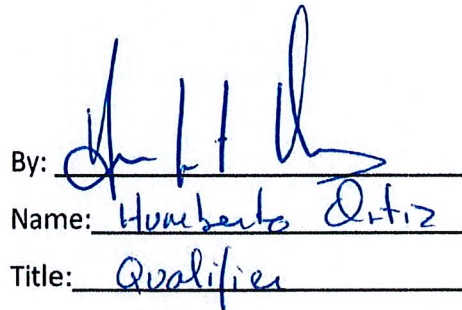 By:
Name: Humberto Ortiz
Title: Qualifier